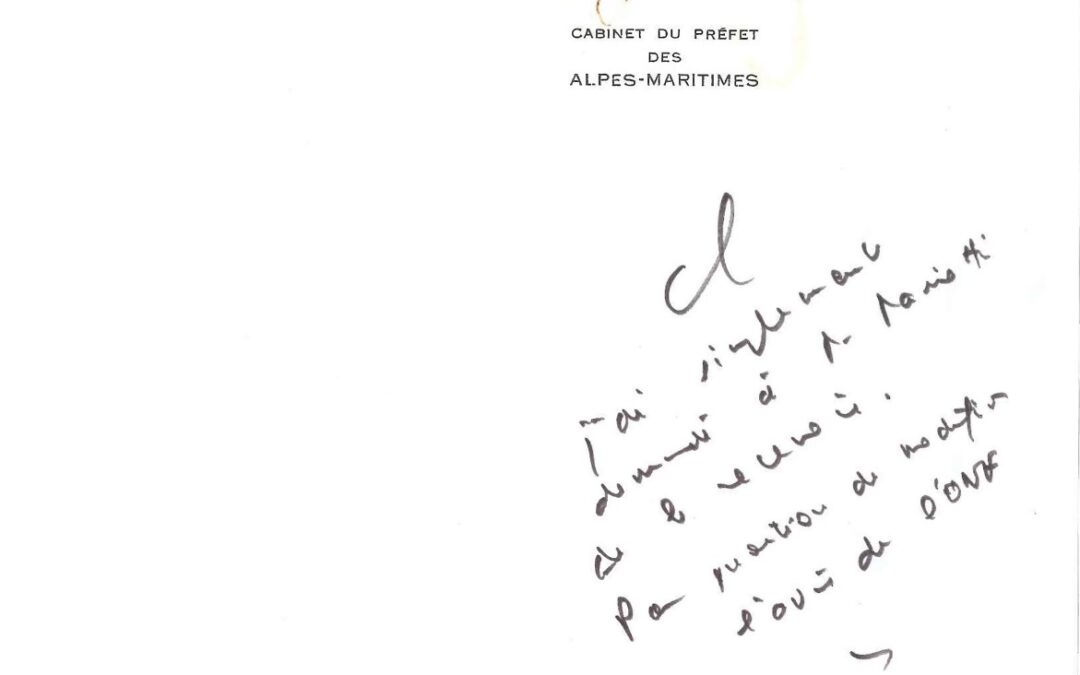 CABINET DU PRÉFET
DES
ALPES-MARITIMES
J'ai simplement
demandé à M. Mariotti
de le recevoir.
Pas question de modifier
l'avis de l'ONF